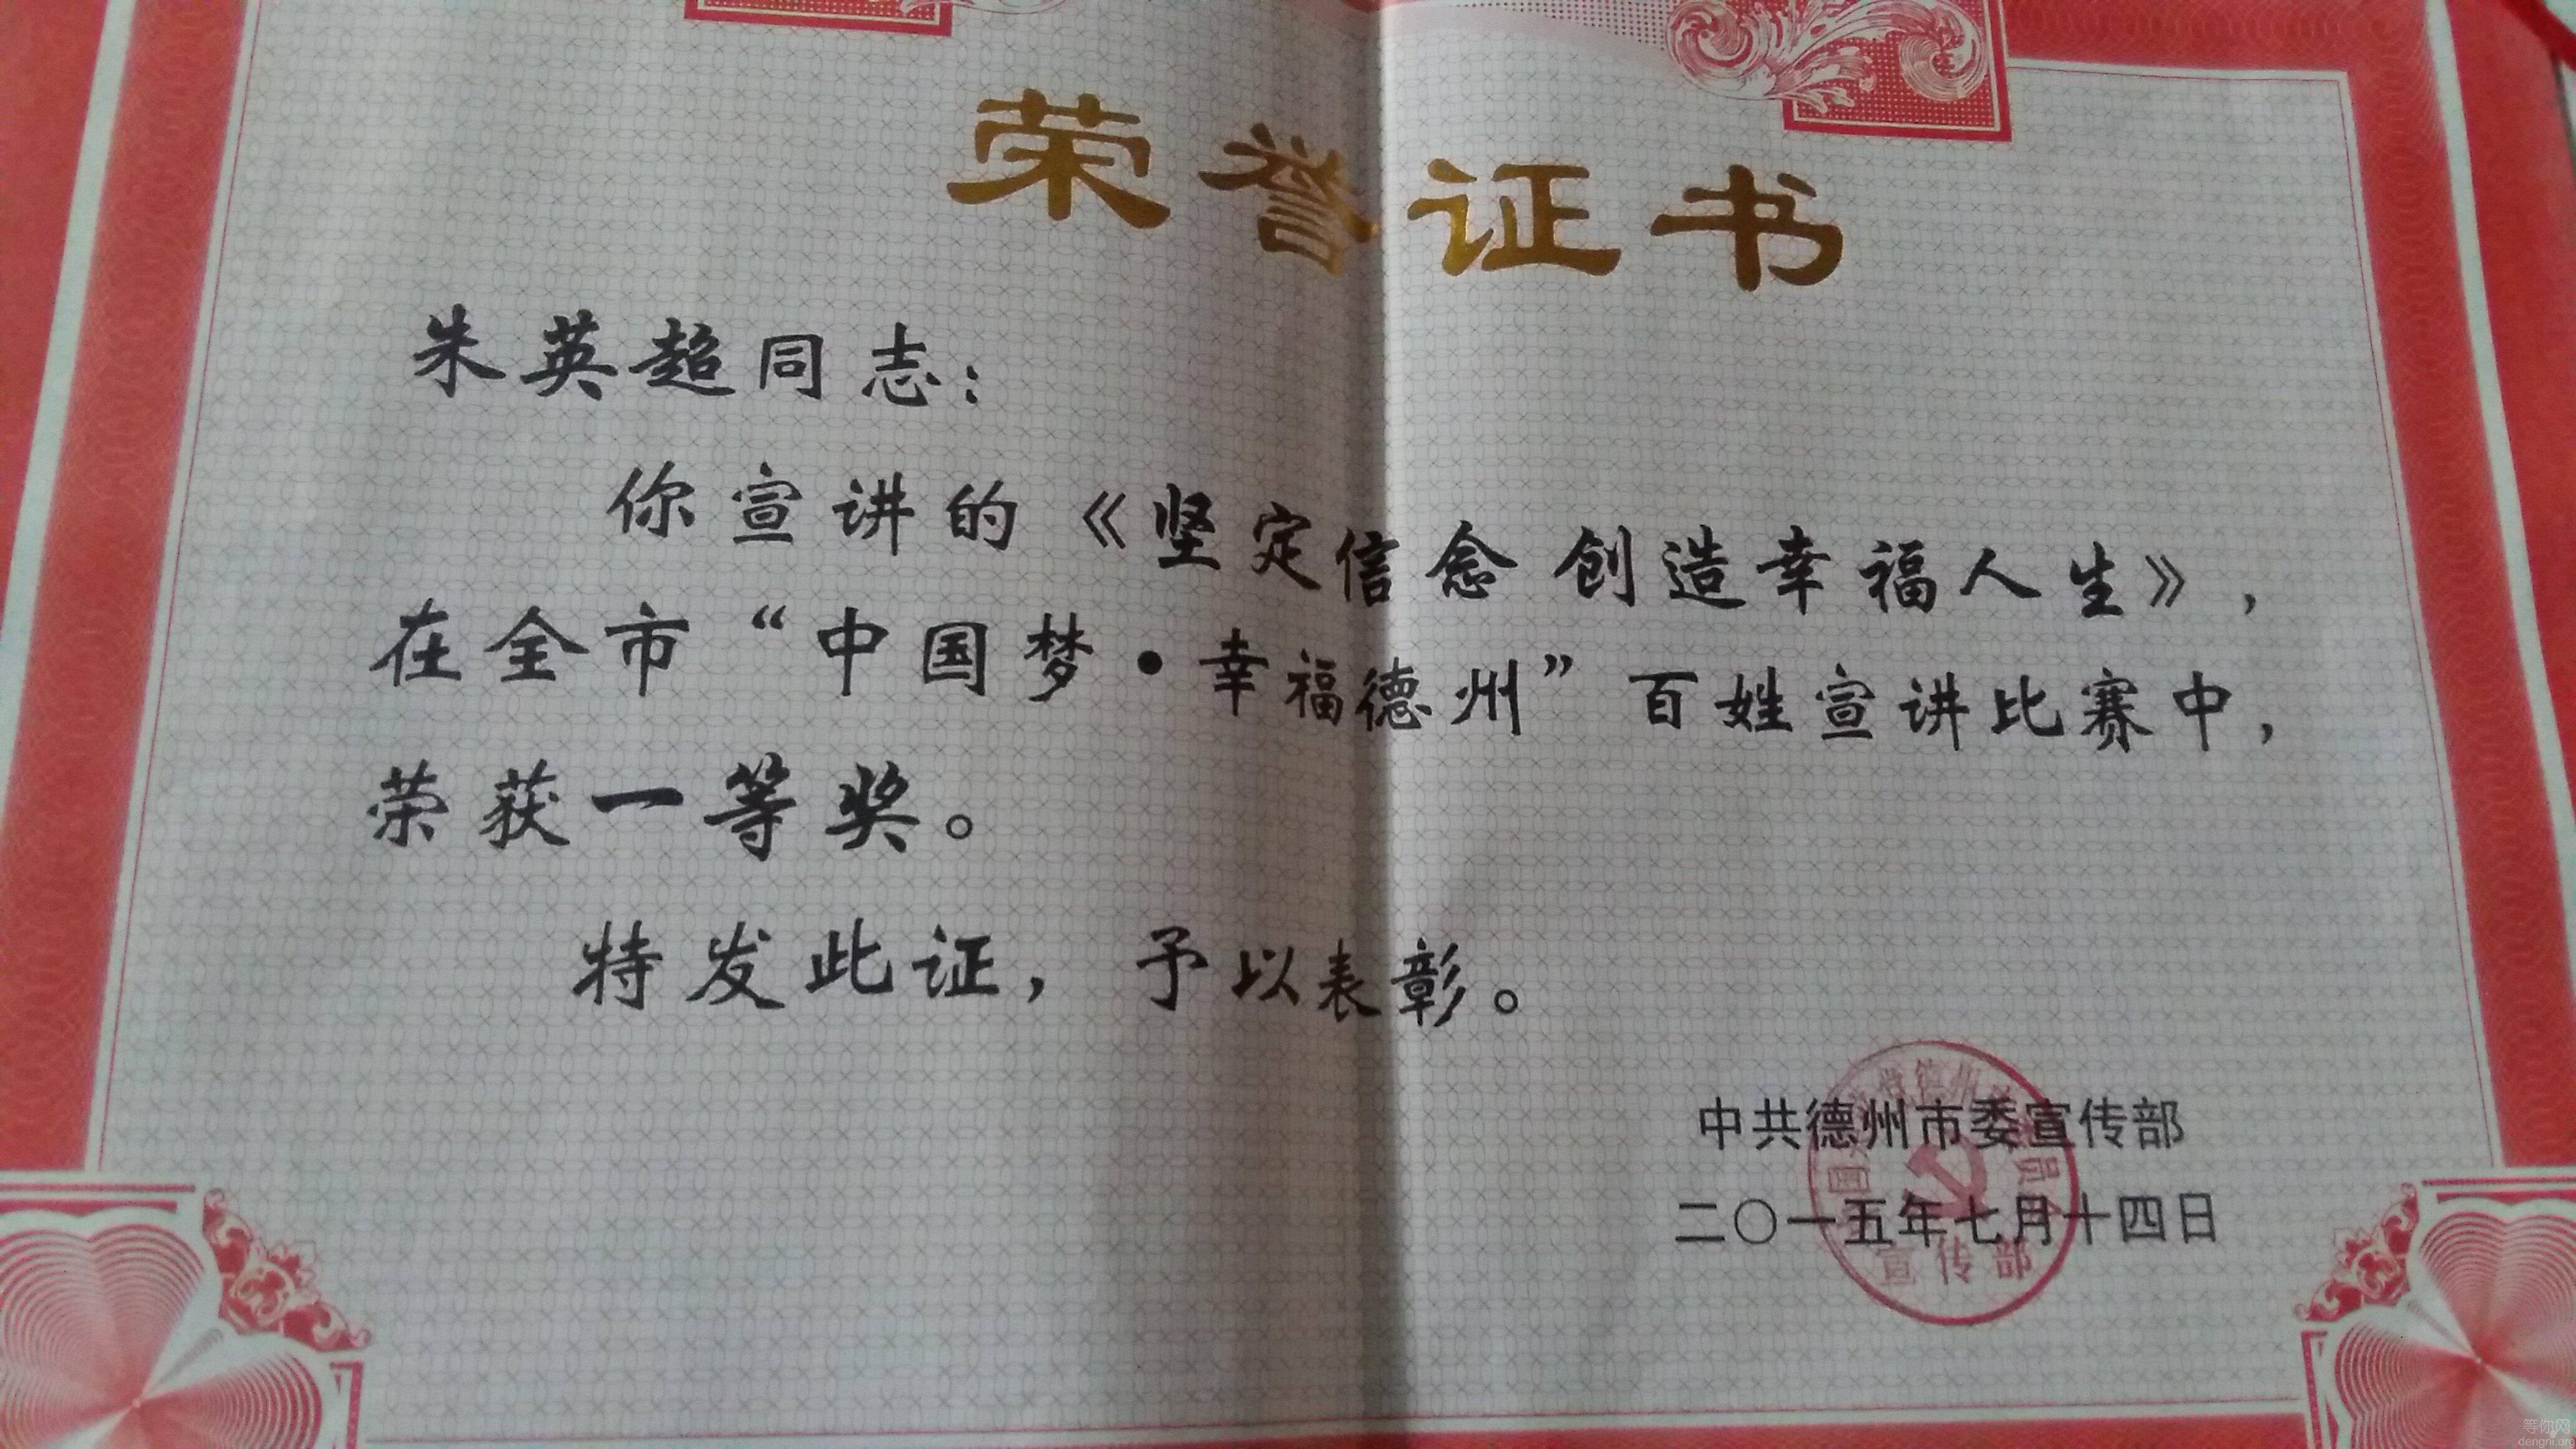 荣誉证书
朱英超同志：
你宣讲的《坚定信念 创造幸福人生》，
在全市“中国梦·幸福德州”百姓宣讲比赛中，
荣获一等奖。
特发此证，予以表彰。
中共德州市委宣传部
二〇一五年七月十四日
宣传部
等你网
dengni.org